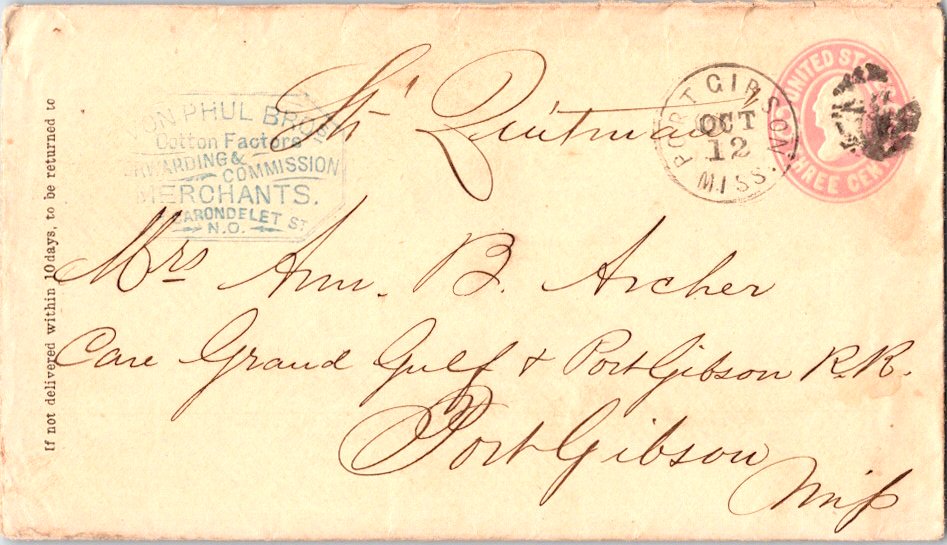 If not delivered within 10 days, to be returned to
ON PHUL BROS.
Cotton Factors
RWARDING & COMMISSION
MERCHANTS.
ARONDELET ST
N.O.
Str Quitman
PORT GIBSON
OCT
12
MISS.
UNITED STA
THREE CENT
Mrs Ann. B. Archer
Care Grand Gulf & Port Gibson R.R.
Port Gibson
Miss